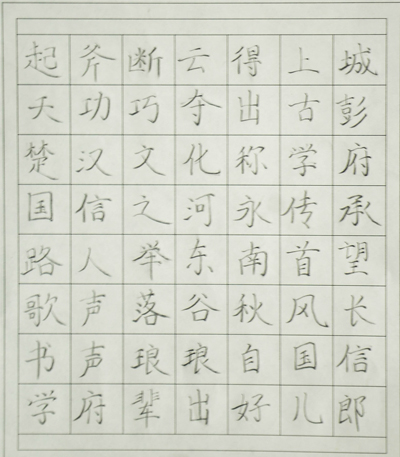 起斧断云得上城
天功巧夺出古彭
楚汉文化称学府
国信之河永传承
路人举东南首望
歌声落谷秋风长
书声琅琅自国信
学府辈出好儿郎